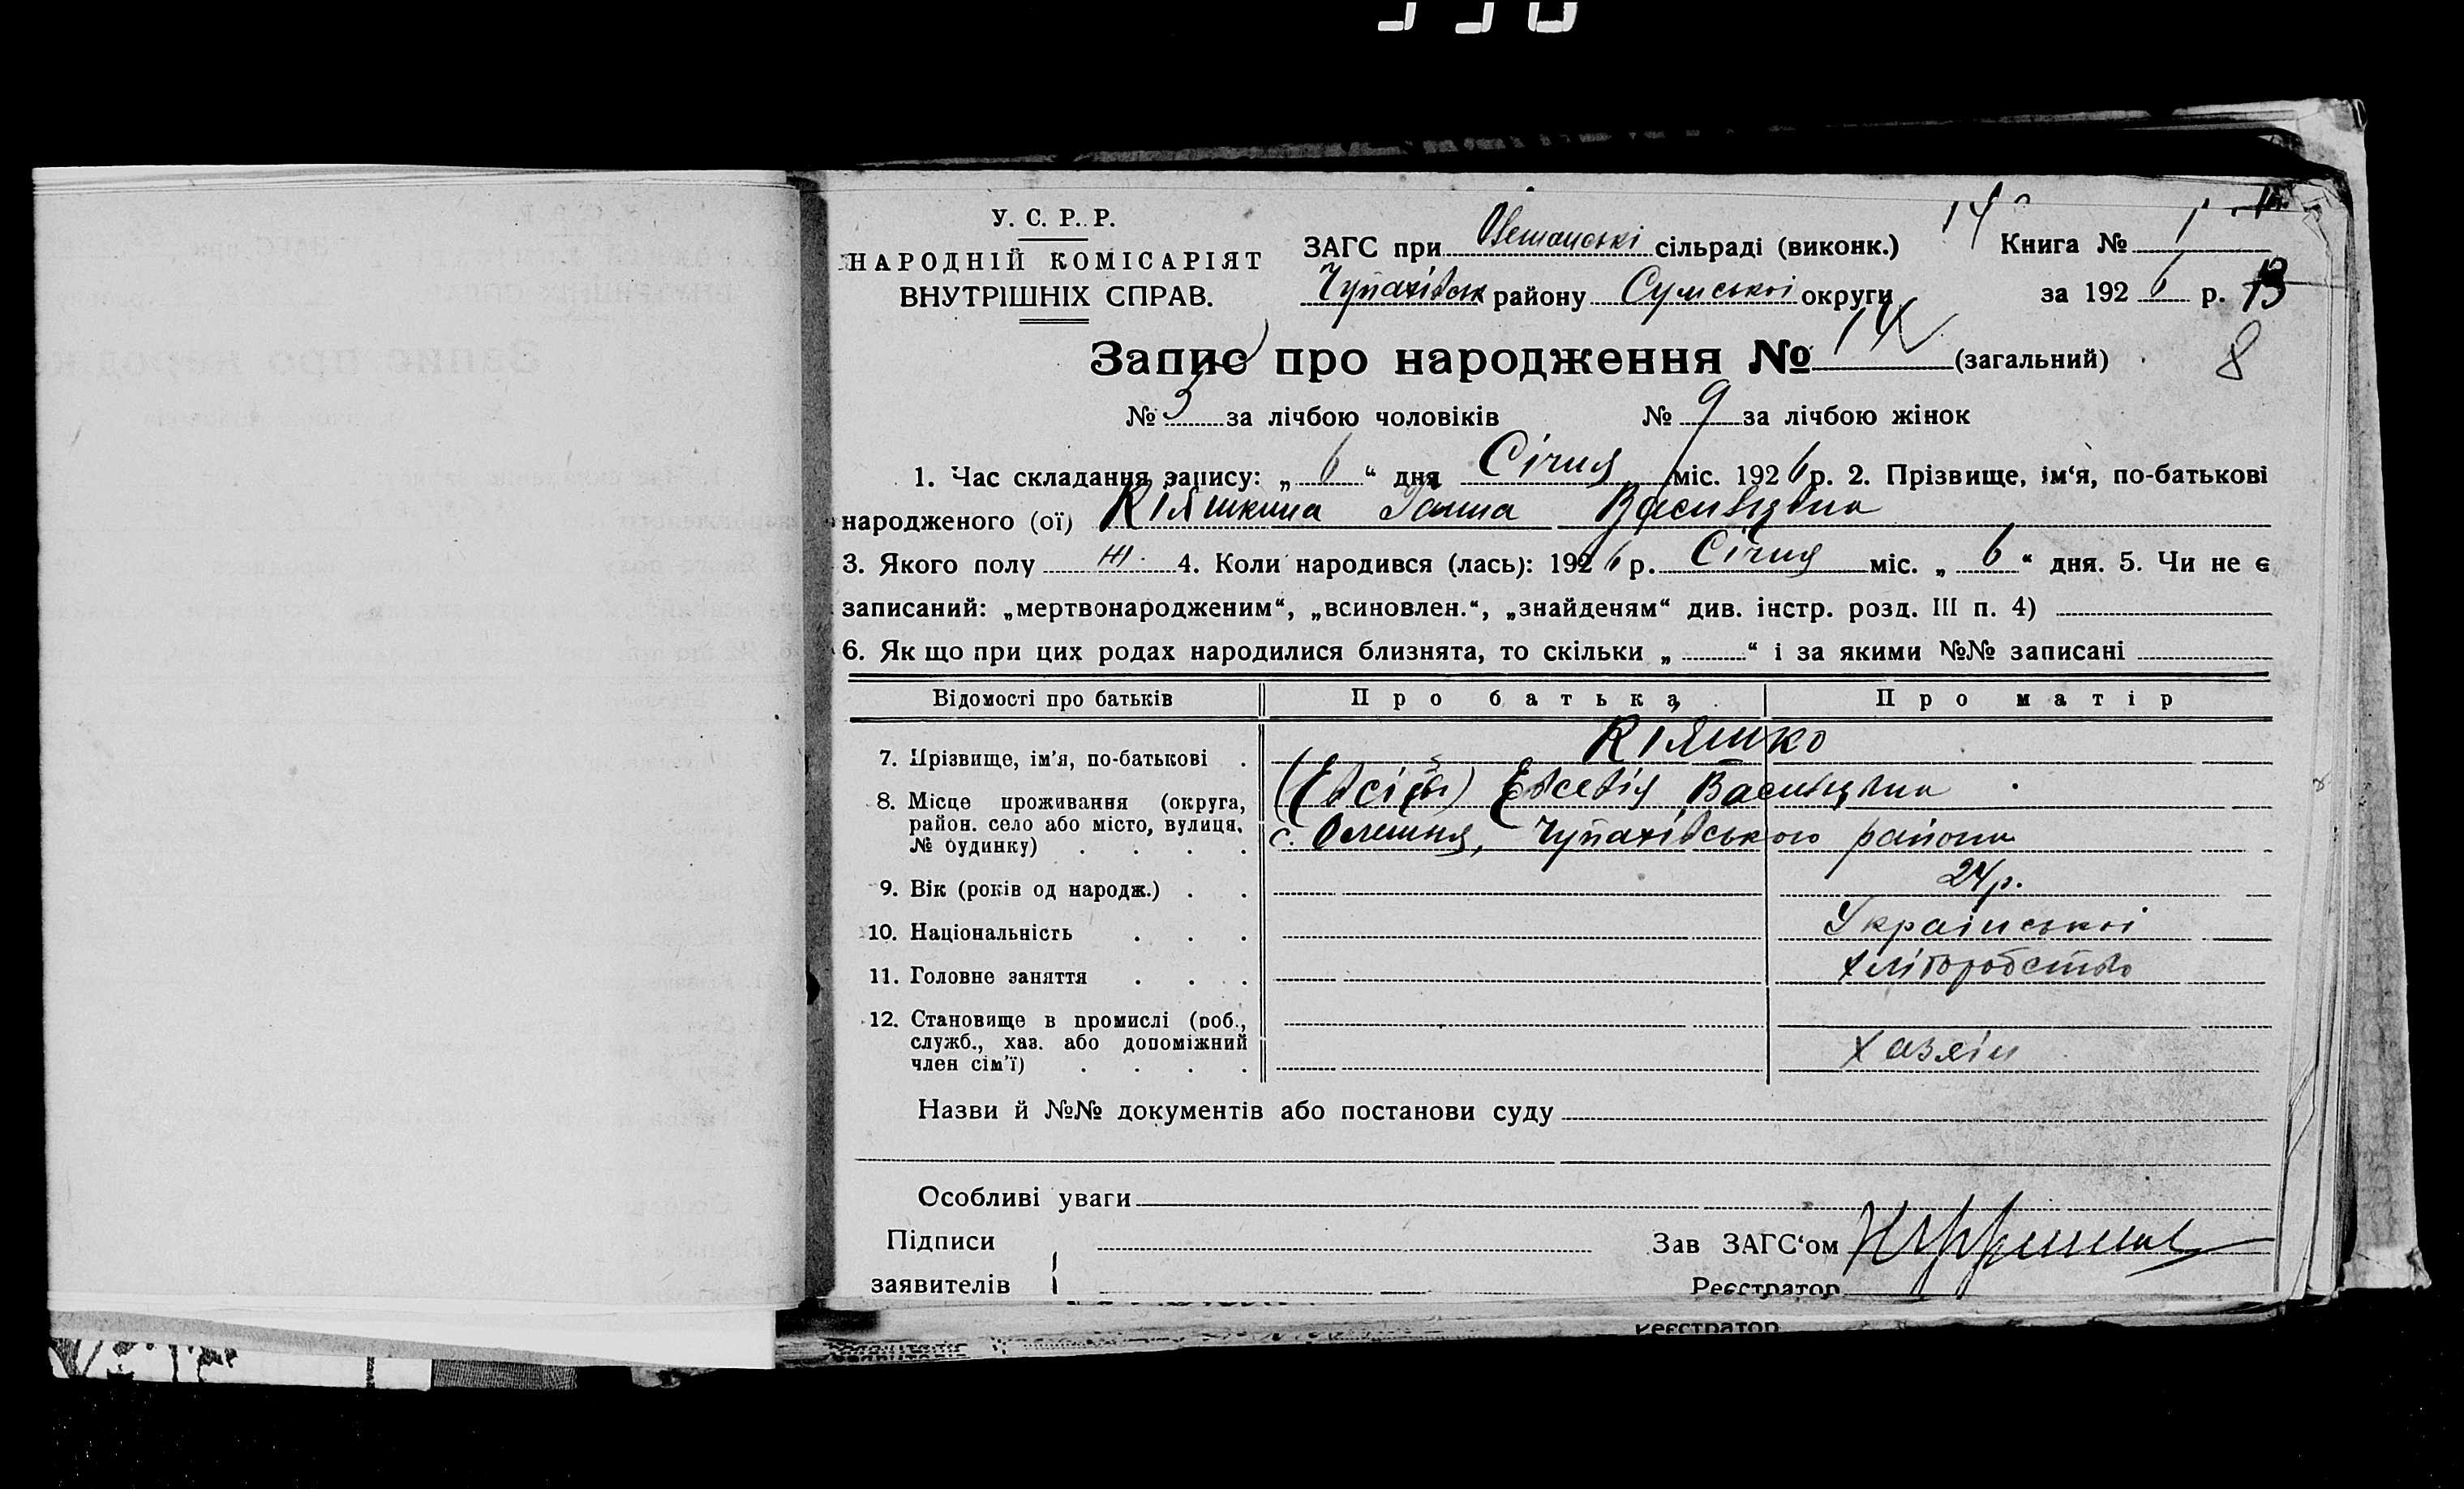 У. С. Р. Р.
НАРОДНІЙ КОМІСАРІЯТ
ВНУТРІШНІХ СПРАВ.
14
ЗАГС при сільраді (виконк.) Книга № 1
Чупахівськ району Сумської округи за 1926 р. 13
8
Запис про народження № 14 (загальний)
№ за лічбою чоловіків № 9 за лічбою жінок
1. Час складання запису: „ 6 “ дня Січня міс. 1926 р. 2. Прізвище, ім‘я, по-батькові
народженого (ої) Кіяшкина Ганна Василівна
3. Якого полу Ж. 4. Коли народився (лась): 1926 р. Січня міс. „ 6 “ дня. 5. Чи не є
записаний: „мертвонародженим“, „всиновлен.“, „знайденям“ див. інстр. розд. III п. 4)
6. Як що при цих родах народилися близнята, то скільки „ “ і за якими №№ записані
Відомості про батьків Про батька Про матір
7. Прізвище, ім’я, по-батькові Кіяшко
8. Місце проживання (округа, Василівна
район. село або місто, вулиця,
№ будинку) с. Олешня, Чупахівського району
9. Вік (років од народж.) 24 р.
10. Національність Української
11. Головне заняття хліборобство
12. Становище в промислі (роб.,
служб., хаз. або допоміжний хазяїн
член сім’ї)
Назви й №№ документів або постанови суду
Особливі уваги
Підписи Зав ЗАГС‘ом
заявителів Реєстратор
Реєстратор